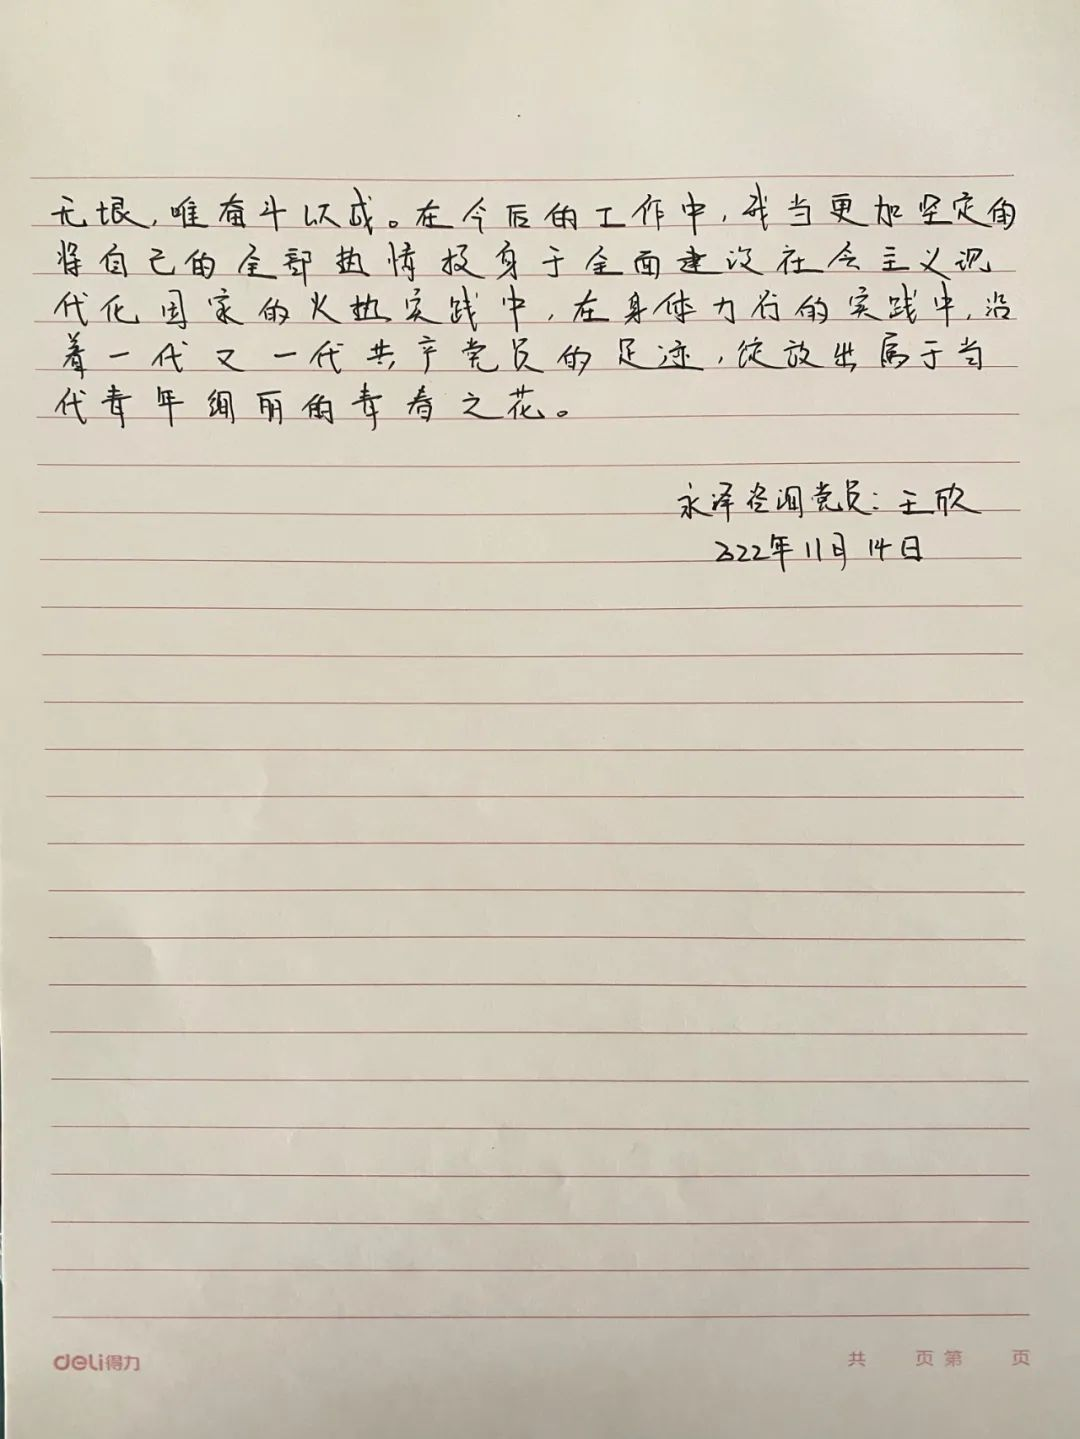 无垠，唯奋斗以成。在今后的工作中，我当更加坚定的
将自己的全部热情投身于全面建设社会主义现
代化国家的火热实践中，在身体力行的实践中，沿
着一代又一代共产党员的足迹，绽放出属于当
代青年绚丽的青春之花。
永泽咨询党员：王欣
2022年11月14日
deli得力
共 页 第 页